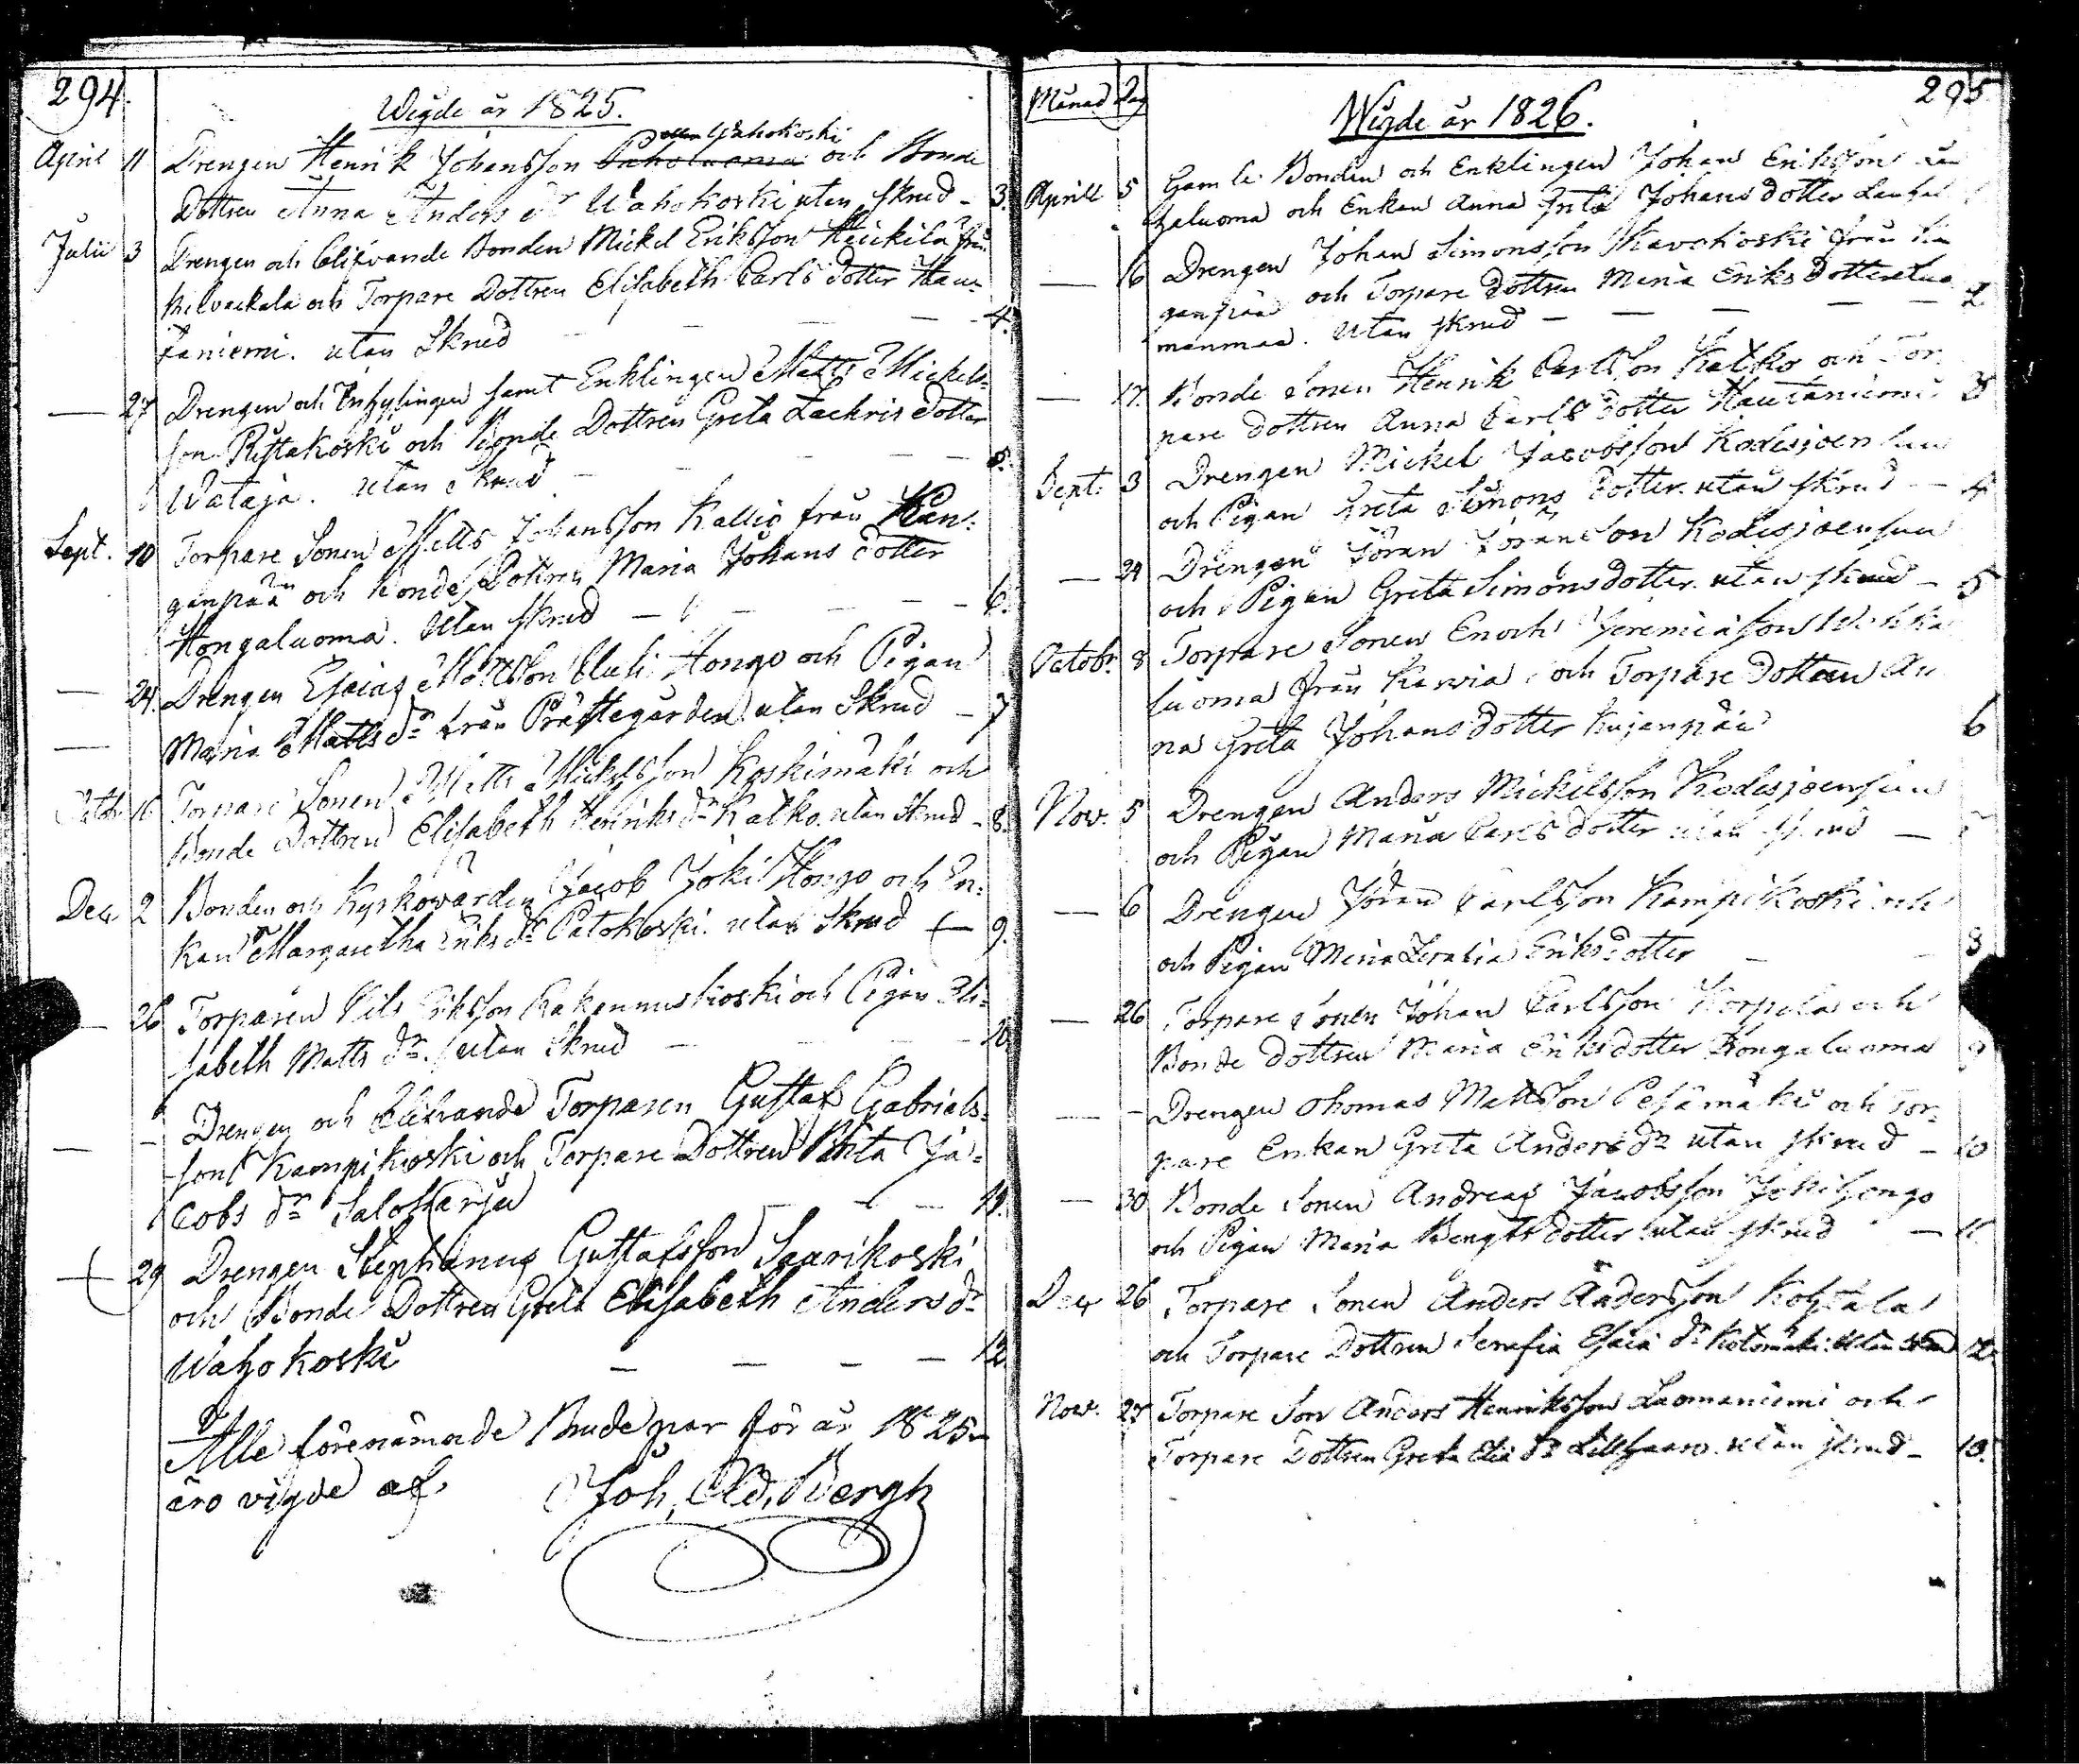 294.
Wigde år 1825.
Wahokoski
April 11 Drengen Henrik Johansson och Bonde
Dottren Anna Anders dr Wahokoski utan skrud - 3.
Julii 3 Drengen och blifvande Bonden Mickel Eriksson Heickilä från
Kilvackala och Torpare Dottren Elisabeth Carls dotter Hau-
taniemi. utan Skrud - - - 4.
— 27 Drengen och Inhysingen samt Enklingen Matts Mickels-
son Ristakoski och Bonde Dottren Greta Zachris dotter
Wataja. utan Skrud - - - 5.
Sept. 10 Torpare Sonen Matts Johansson Kallio från Kan-
ganpää och Bonde Dottren Maria Johans dotter
Hongaluoma. utan skrud - - - 6.
— 24. Drengen Esaias Mattsson Hongo och Pigan
— Maria Matts dr från Prästegården utan Skrud - 7
Octobr 16 Torpare Sonen Matts Mickelsson Koskimäki och
Bonde Dottren Elisabeth Henriks dr Katko. utan skrud - 8.
Dec 2 Bonden och Kyrkovärden Jacob Joki Hongo och En-
kan Margaretha Eriks dr Patokoski. utan Skrud - 9.
— 26 Torparen Nils Eriksson Kakannuskoski och Pigan Eli-
sabeth Matts dr. utan Skrud - - 10.
— - Drengen och blifvande Torparen Gustaf Gabriels-
son Kampikoski och Torpare Dottren Brita Ja-
cobs dr Saloharju - - 11.
— 29 Drengen Stephanus Gustafsson Saarikoski
och Bonde Dottren Greta Elisabeth Anders dr
Wahokoski - - - - 12
Alle förenämnde Brudepar för år 1825
äro vigde af. Joh. Ad. Bergh
Månad Dag
295
Wigde år 1826.
Aprill 5 Gamle Bonden och Enklingen Johan Eriksson
haluoma och Enkan Anna Johans dotter
— 16 Drengen Johan Simonsson Kavokoski från Kan
ganpää och Torpare dottren Maria Eriks Dotter
mänmaa. utan skrud - - - - 2.
— 17. Bonde Sonen Henrik Carlsson Katko och Tor-
pare dottren Anna Carls dotter Hautaniemi 3
Sept: 3 Drengen Mickel Jacobsson Kodesjoensuu
och Pigan Greta Simons dotter. utan skrud - 4
— 24 Drengen Jöran Jöransson Kodesjoensuu
och Pigan Greta Simonsdotter. utan skrud - 5
Octobr. 8 Torpare Sonen Enoch Jeremiasson
luoma från Karvia och Torpare Dottren An
na Greta Johansdotter Kujanpää 6
Nov. 5 Drengen Anders Mickelsson Kodesjoensuu
och Pigan Maria Carls dotter utan skrud -
— 6 Drengen Jöran Carlsson Kampikoski och
och Pigan Maria Serafia Eriksdotter - - 8
— 26 Torpare Sonen Johan Carlsson Korpela och
Bonde dottren Maria Eriksdotter Hongaluoma 9
— - Drengen Thomas Mattsson Pesämäki och Tor-
pare Enkan Greta Anders dr utan skrud - 10
— 30 Bonde Sonen Andreas Jacobsson Jokihongo
och Pigan Maria Bengts dotter utan skrud - 11
Dec 26 Torpare Sonen Anders Andersson Kohtala
och Torpare Dottren Serafia Esaia dr Kotomäki. utan skrud 12.
Nov. 27 Torpare Son Anders Henriksson Luomaniemi och
Torpare Dottren Greta Elia dr Lillhaaro. utan skrud - 13.